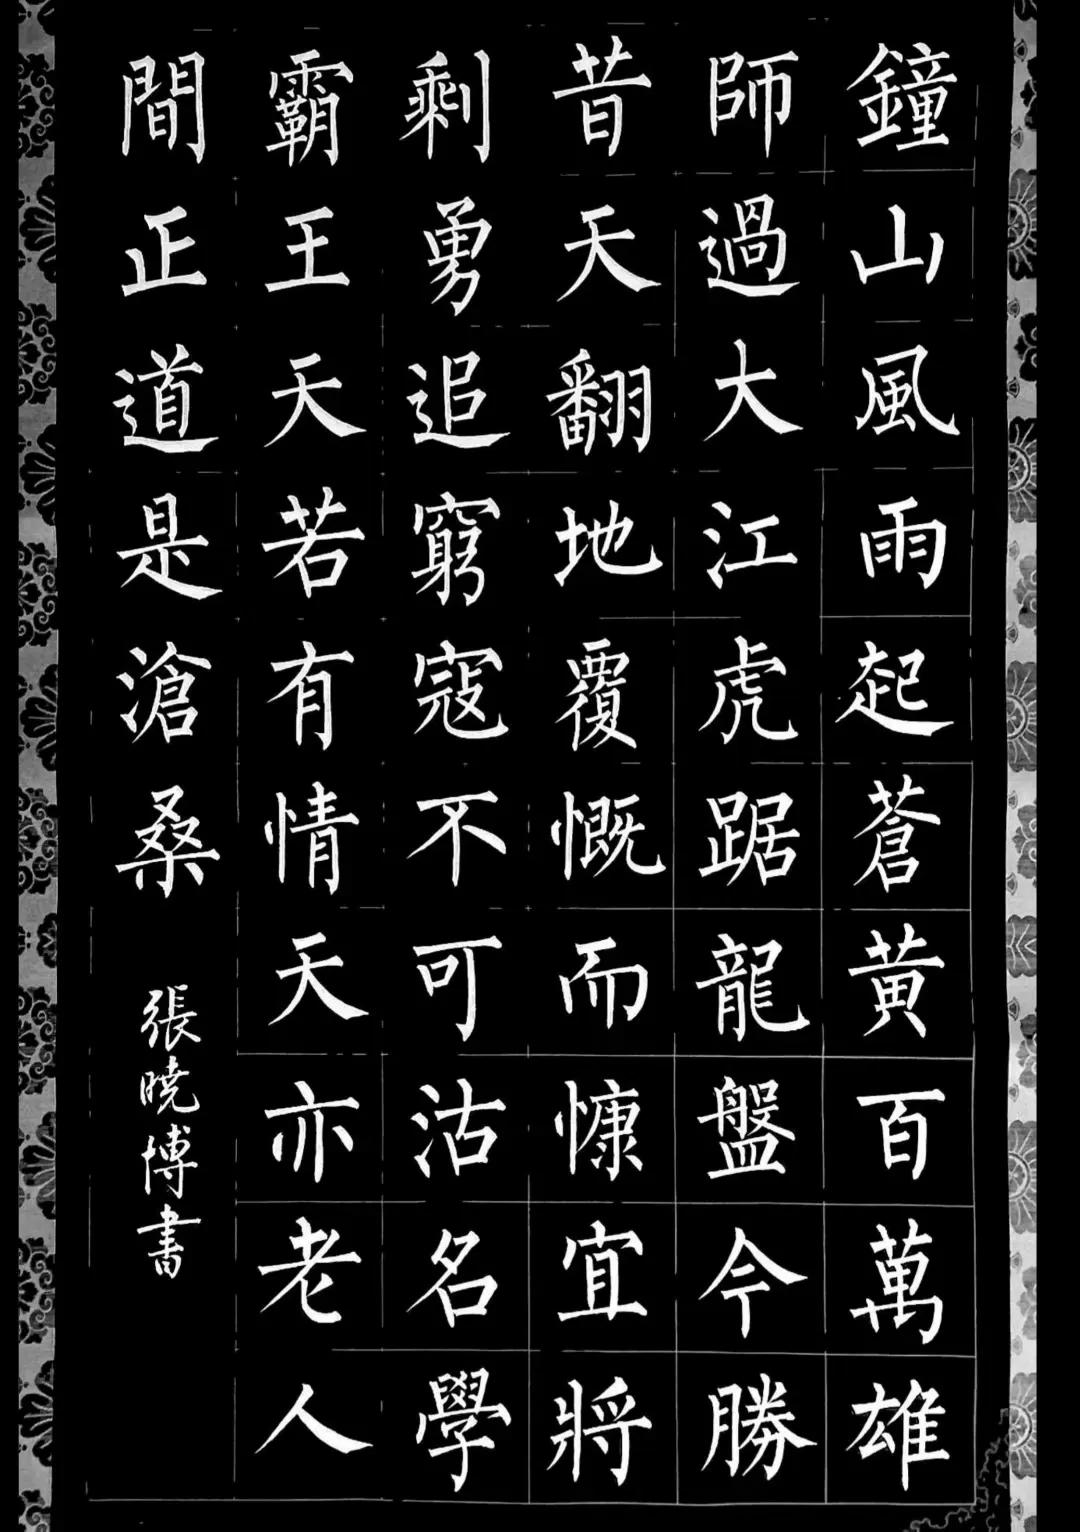 鐘山風雨起蒼黃百萬雄
師過大江虎踞龍盤今勝
昔天翻地覆慨而慷宜將
剩勇追窮寇不可沽名學
霸王天若有情天亦老人
間正道是滄桑
張曉博書